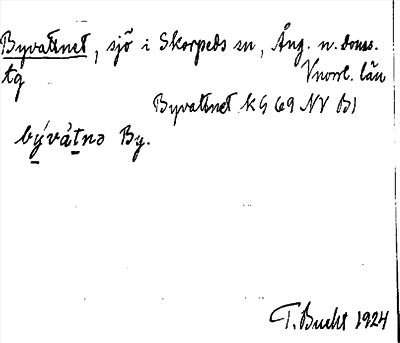 Byvattnet, sjö i Skorpeds sn, Ång. n. doms.
tg Vnorrl. län
Byvattnet kG 69 NV B1
bývàtnə By.
T. Bucht 1924